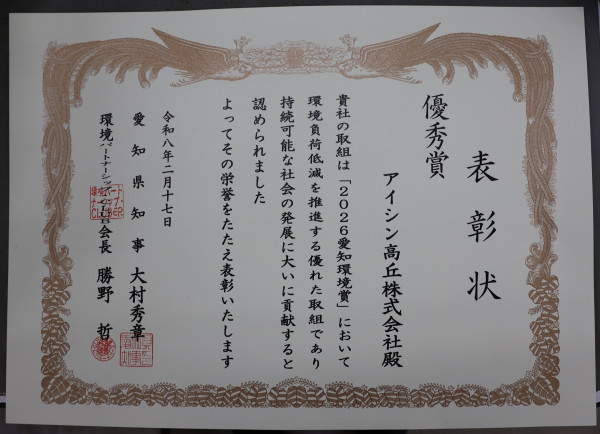 表彰状
優秀賞
アイシン高丘株式会社殿
貴社の取組は「2026愛知環境賞」において
環境負荷低減を推進する優れた取組であり
持続可能な社会の発展に大いに貢献すると
認められました
よってその栄誉をたたえ表彰いたします
令和八年二月十七日
愛知県知事 大村秀章
環境パートナーシップ・CLUB会長 勝野 哲